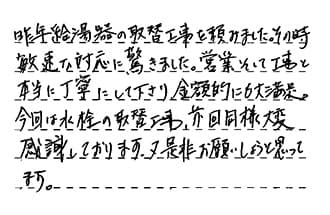 昨年給湯器の取替工事を頼みました。その時
敏速な対応に驚きました。営業そして工事と
本当に丁寧にして下さり、金額的にも大満足。
今回は水栓の取替工事、前回同様大変
感謝しております。又是非お願いしようと思って
ます。